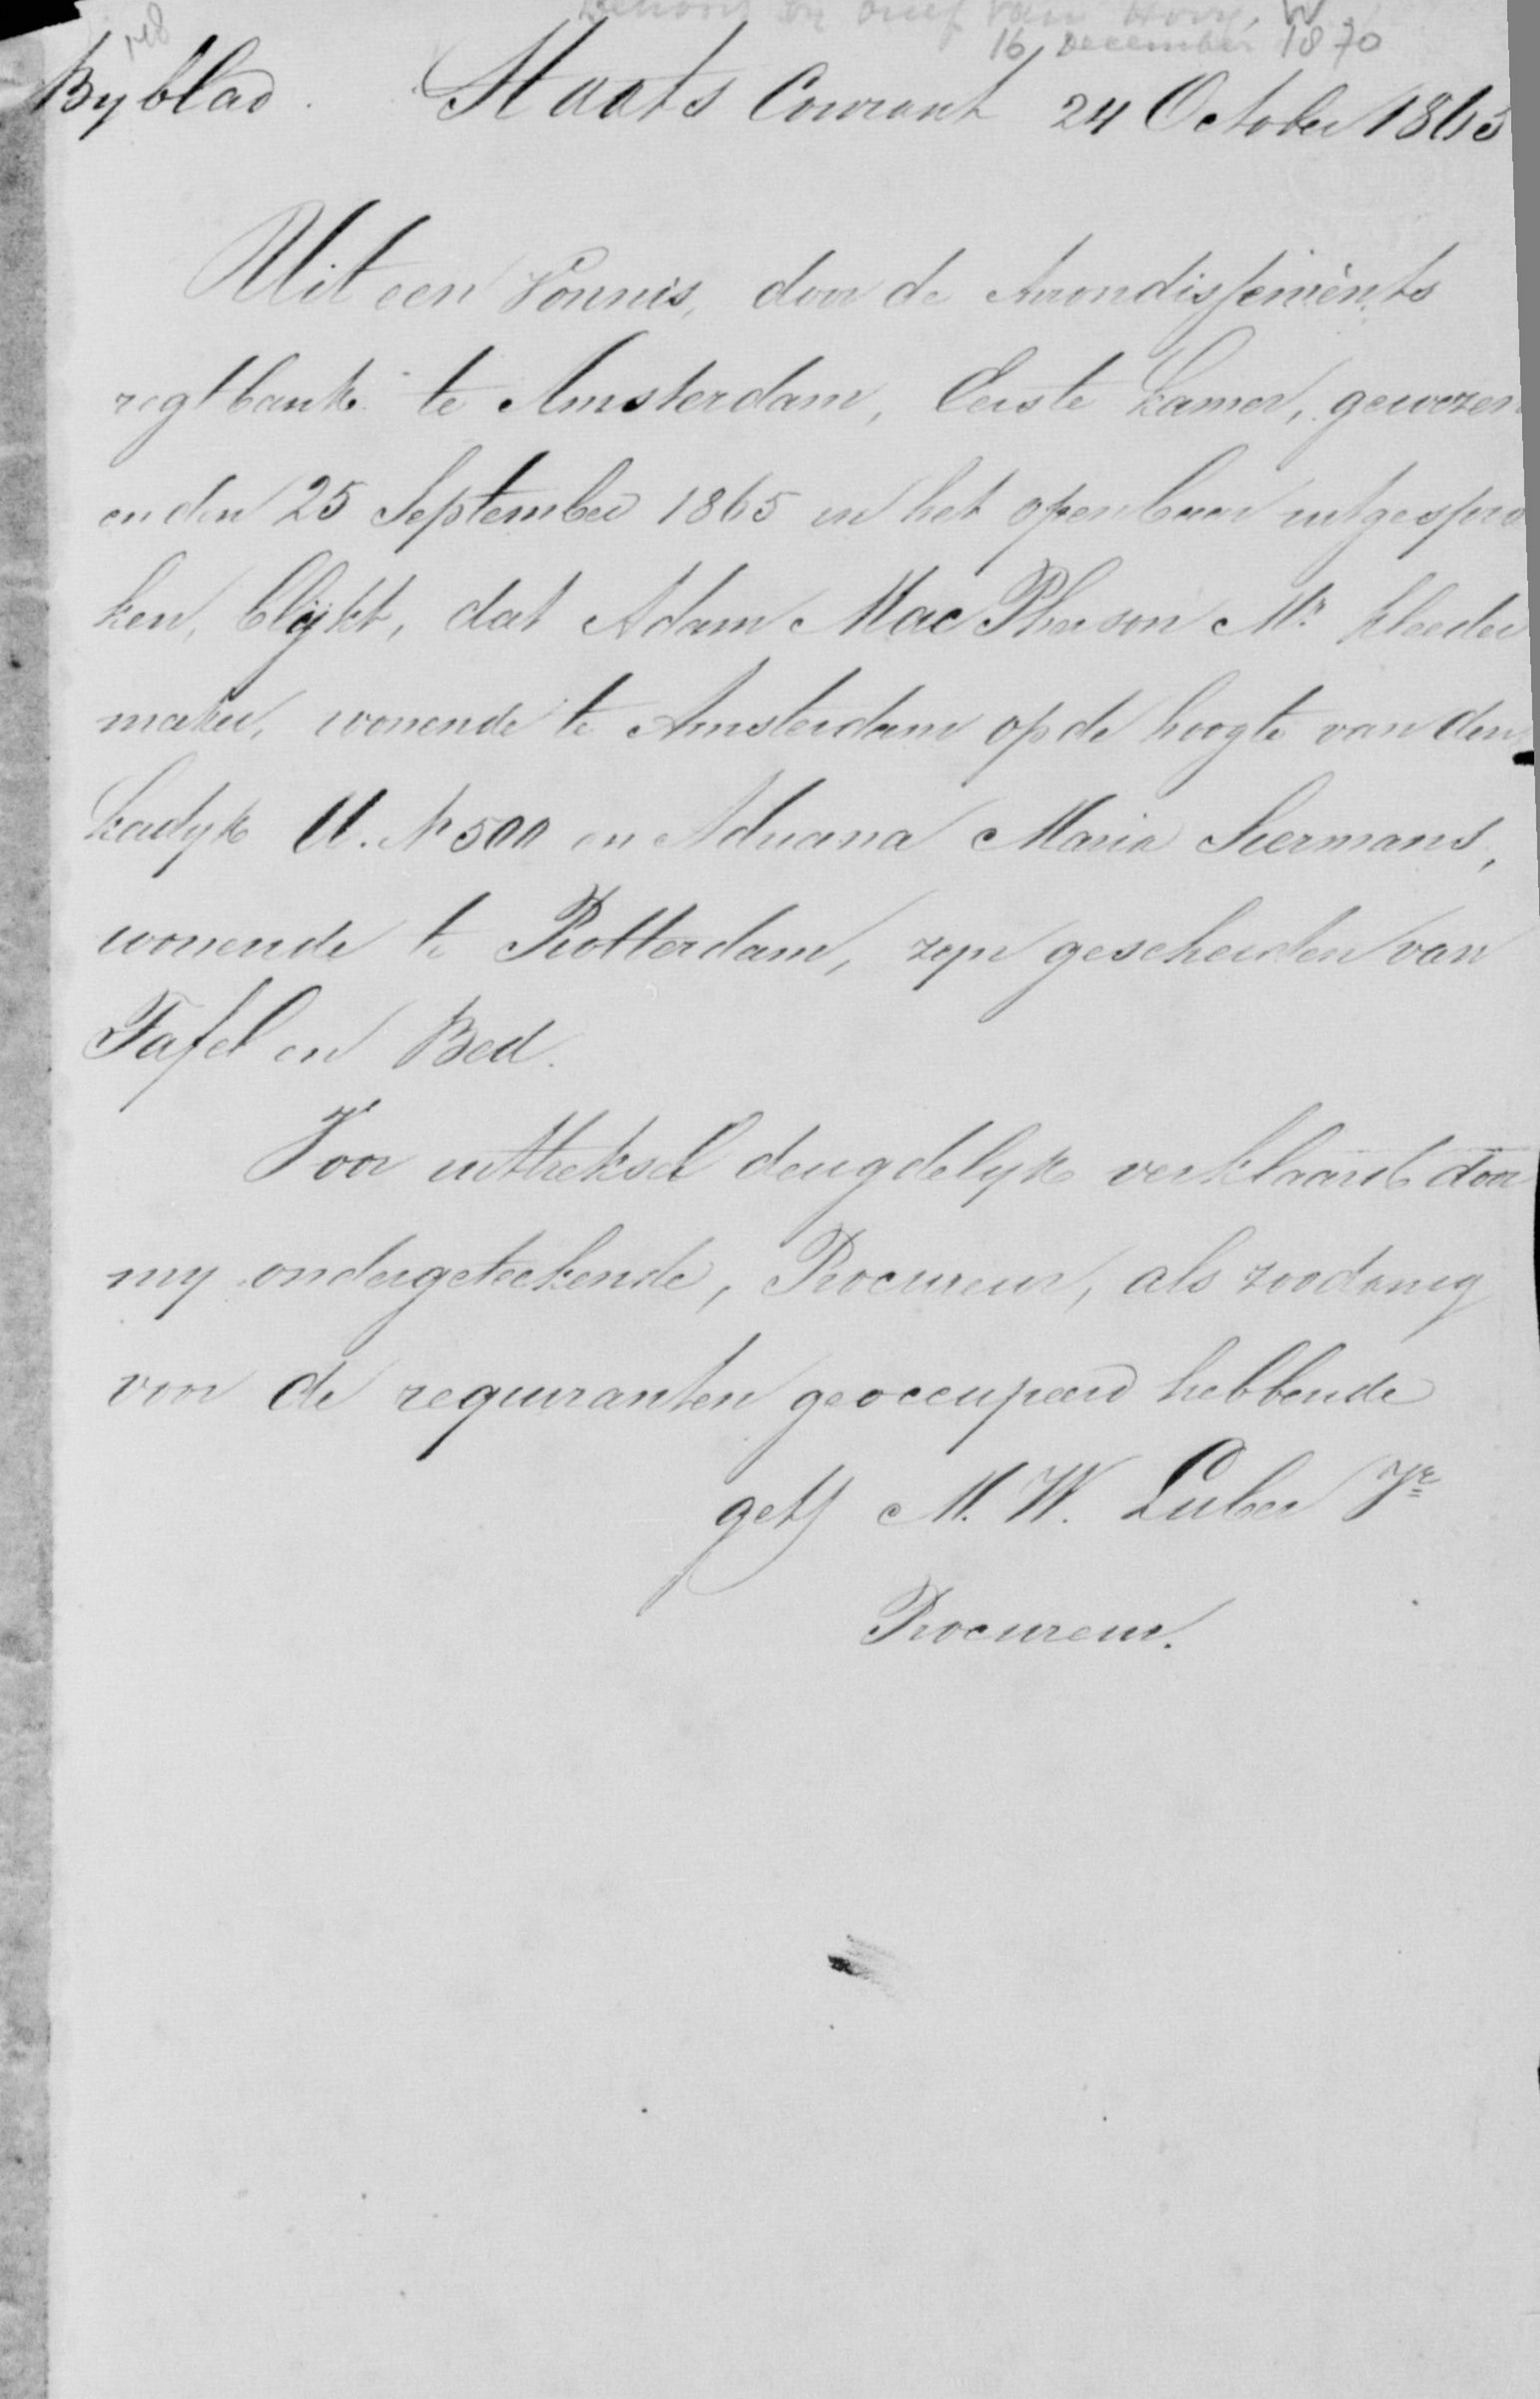 Behoort bij brief van Hoog, W
16 December 1870
Byblad. Staats Courant 24 October 1865
Uit een Vonnis, door de Arrondissements
regtbank te Amsterdam, Eerste Kamer, gewezen
en den 25 September 1865 in het openbaar uitgespro
ken, blijkt, dat Adam Mac Pherson Mr. kleeder
maker, wonende te Amsterdam op de hoogte van den
Kadyk U. No 500 en Adriana Maria Seermans,
wonende te Rotterdam, zyn gescheiden van
Tafel en Bed.
Voor uittreksel deugdelyk verklaard door
my ondergeteekende, Procureur, als zoodanig
voor de requiranten geoccupeerd hebbende
get M. W. Luber Jr
Procureur.